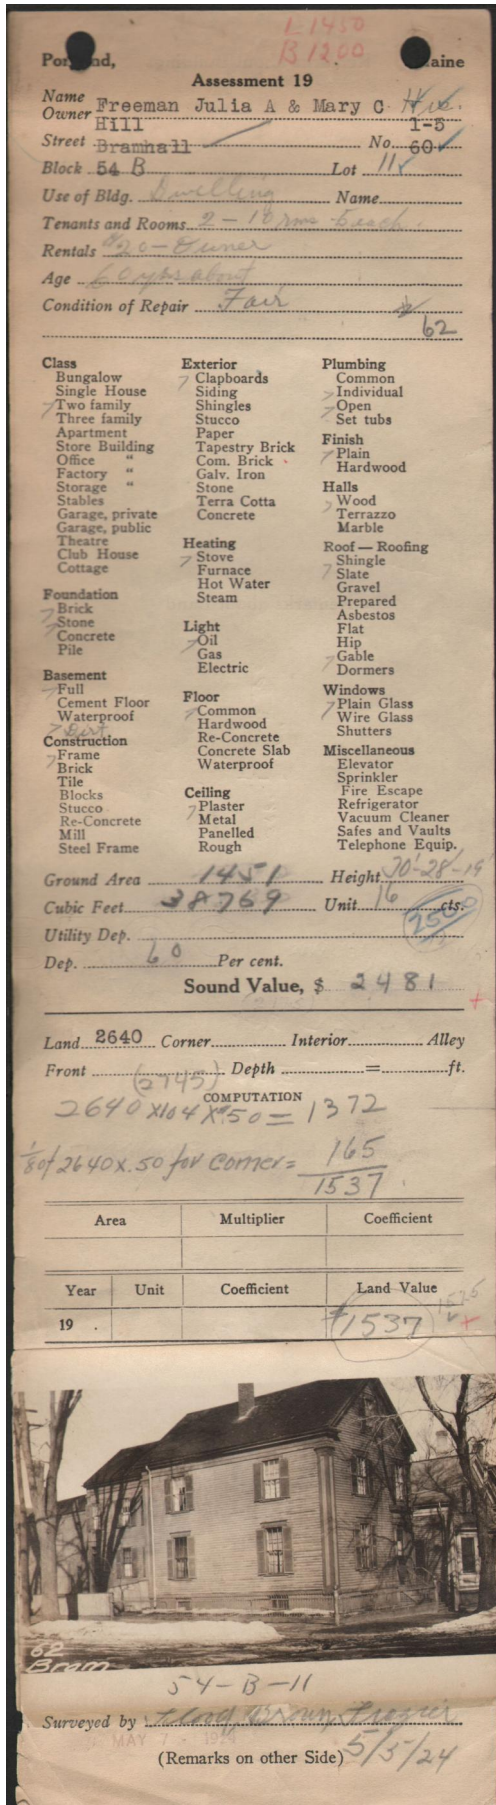 L 1450
B 1200
Portland, Maine
Assessment 19
Name
Owner Freeman Julia A & Mary C. Hrs.
Hill 1-5
Street Bramhall No. 60
Block 54 B Lot 11
Use of Bldg. Dwelling Name
Tenants and Rooms 2 - 10 rms Each.
Rentals $20 - Owner
Age 60 yrs about
Condition of Repair Fair
62
Class
Bungalow
Single House
Two family
Three family
Apartment
Store Building
Office "
Factory "
Storage "
Stables
Garage, private
Garage, public
Theatre
Club House
Cottage
Foundation
Brick
Stone
Concrete
Pile
Basement
Full
Cement Floor
Waterproof
Dirt
Construction
Frame
Brick
Tile
Blocks
Stucco
Re-Concrete
Mill
Steel Frame
Exterior
Clapboards
Siding
Shingles
Stucco
Paper
Tapestry Brick
Com. Brick
Galv. Iron
Stone
Terra Cotta
Concrete
Heating
Stove
Furnace
Hot Water
Steam
Light
Oil
Gas
Electric
Floor
Common
Hardwood
Re-Concrete
Concrete Slab
Waterproof
Ceiling
Plaster
Metal
Panelled
Rough
Plumbing
Common
Individual
Open
Set tubs
Finish
Plain
Hardwood
Halls
Wood
Terrazzo
Marble
Roof — Roofing
Shingle
Slate
Gravel
Prepared
Asbestos
Flat
Hip
Gable
Dormers
Windows
Plain Glass
Wire Glass
Shutters
Miscellaneous
Elevator
Sprinkler
Fire Escape
Refrigerator
Vacuum Cleaner
Safes and Vaults
Telephone Equip.
Ground Area 1451 Height 30'-28-19
Cubic Feet 38769 Unit 16 cts.
2500
Utility Dep.
Dep. 60 Per cent.
Sound Value, $ 2481
Land 2640 Corner Interior Alley
Front Depth = ft.
(2745)
COMPUTATION
2640 x 104 x .50 = 1372
1/8 of 2640 x .50 for corner = 165
1537
Area Multiplier Coefficient
Year Unit Coefficient Land Value
19 . $1537 1525
62
Bram
54-B-11
Surveyed by Flood, Brown, Frazier
MAY 7 - 1924
(Remarks on other Side) 5/5/24